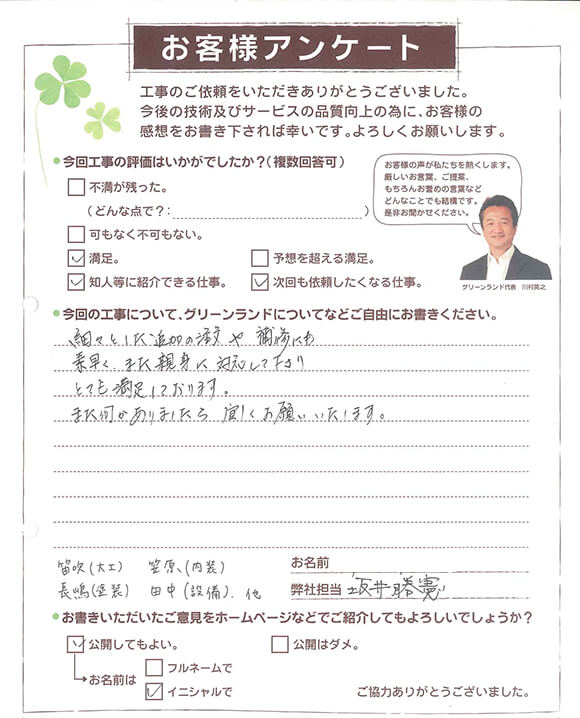 お客様アンケート
工事のご依頼をいただきありがとうございました。
今後の技術及びサービスの品質向上の為に、お客様の
感想をお書き下されば幸いです。よろしくお願いします。
今回工事の評価はいかがでしたか?(複数回答可)
お客様の声が私たちを熱くします。
厳しいお言葉、ご提案、
もちろんお誉めの言葉など
どんなことでも結構です。
是非お聞かせください。
不満が残った。
(どんな点で?: )
可もなく不可もない。
満足。 予想を超える満足。
知人等に紹介できる仕事。 次回も依頼したくなる仕事。
グリーンランド代表 川村英之
今回の工事について、グリーンランドについてなどご自由にお書きください。
細々とした追加の注文や補修にも
素早く、また親身に対応して下さり
とても満足しております。
また何かありましたら宜しくお願いいたします。
笛吹(大工) 笠原、(内装)
長嶋(塗装) 田中(設備)、他
お名前
弊社担当 坂井勝寛
お書きいただいたご意見をホームページなどでご紹介してもよろしいでしょうか?
公開してもよい。 公開はダメ。
お名前は フルネームで
イニシャルで
ご協力ありがとうございました。